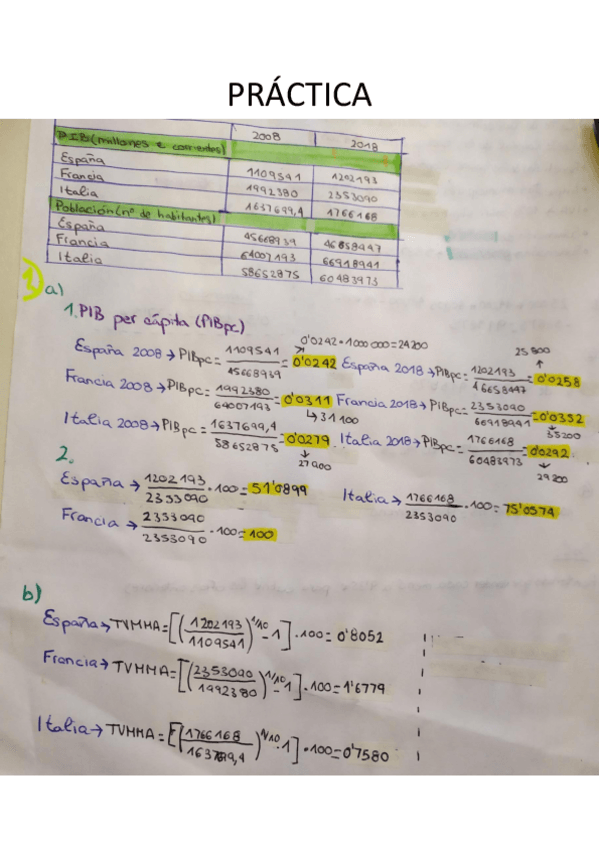 PRÁCTICA
2008 2018
PIB (millones € corrientes)
España 1109541 1202193
Francia 1992380 2353090
Italia 1637699,4 1766168
Población (nº de habitantes)
España 45668939 46658447
Francia 64007193 66918941
Italia 58652875 60483973
1 a)
1. PIB per cápita (PIBpc)
España 2008 → PIBpc = 1109541 / 45668939 = 0'0242 → 0'0242 · 1000 000 = 24200
España 2018 → PIBpc = 1202193 / 46658447 = 0'0258 → 25 800
Francia 2008 → PIBpc = 1992380 / 64007193 = 0'0311 → 31 100
Francia 2018 → PIBpc = 2353090 / 66918941 = 0'0352 → 35200
Italia 2008 → PIBpc = 1637699,4 / 58652875 = 0'0279. → 27 900
Italia 2018 → PIBpc = 1766168 / 60483973 = 0'0292. → 29 200
2.
España → 1202193 / 2353090 · 100 = 51'0899
Italia → 1766168 / 2353090 · 100 = 75'0574
Francia → 2353090 / 2353090 · 100 = 100
b)
España → TVMMA = [(1202193 / 1109541)^1/10 - 1] · 100 = 0'8052
Francia → TVMMA = [(2353090 / 1992380)^1/10 - 1] · 100 = 1'6779
Italia → TVMMA = [(1766168 / 1637699,4)^1/10 - 1] · 100 = 0'7580